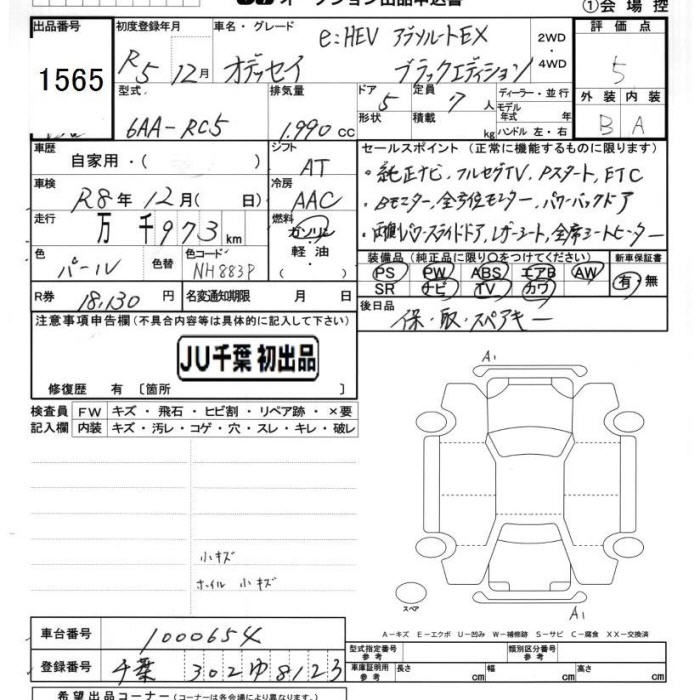 オークション出品申込書 ①会場控
出品番号 初度登録年月 車名・グレード 評価点
1565 R5 12月 オデッセイ e:HEV アブソルートEX ブラックエディション 2WD・4WD 5
型式 排気量 ドア 定員 ディーラー・並行 外装 内装
6AA-RC5 1.990cc 5 7人 モデル年式 年 B A
形状 積載 kg ハンドル 左・右
車歴 シフト セールスポイント(正常に機能するものに限ります)
自家用・( ) AT ・純正ナビ, フルセグTV, Pスタート, ETC
車検 冷房 ・Bモニター, 全方位モニター, パワーバックドア
R8年12月( 日) AAC ・両側パワースライドドア, レザーシート, 全席シートヒーター
走行 燃料
万 千973km ガソリン 軽油・( )
色 色替 色コード 装備品(純正品に限り○をつけてください) 新車保証書
パール NH883P PS PW ABS エアB AW 有・無
SR ナビ TV カワ
R券 18,130円 名変通知期限 月 日 後日品
注意事項申告欄(不具合内容等は具体的に記入して下さい) 保・取・スペアキー
JU千葉 初出品
修復歴 有 [箇所 ]
A1
検査員 FW キズ・飛石・ヒビ割・リペア跡・×要
記入欄 内装 キズ・汚レ・コゲ・穴・スレ・キレ・破レ
小キズ
ホイル 小キズ
スペア
A1
A-キズ E-エクボ U-凹み W-補修跡 S-サビ C-腐食 XX-交換済
車台番号 1000654
型式指定番号 参考 類別区分番号 参考
登録番号 千葉 302 ゆ 8123
車庫証明用 参考 長さ cm 幅 cm 高さ cm
希望出品コーナー(コーナーは各会場により異なります。)